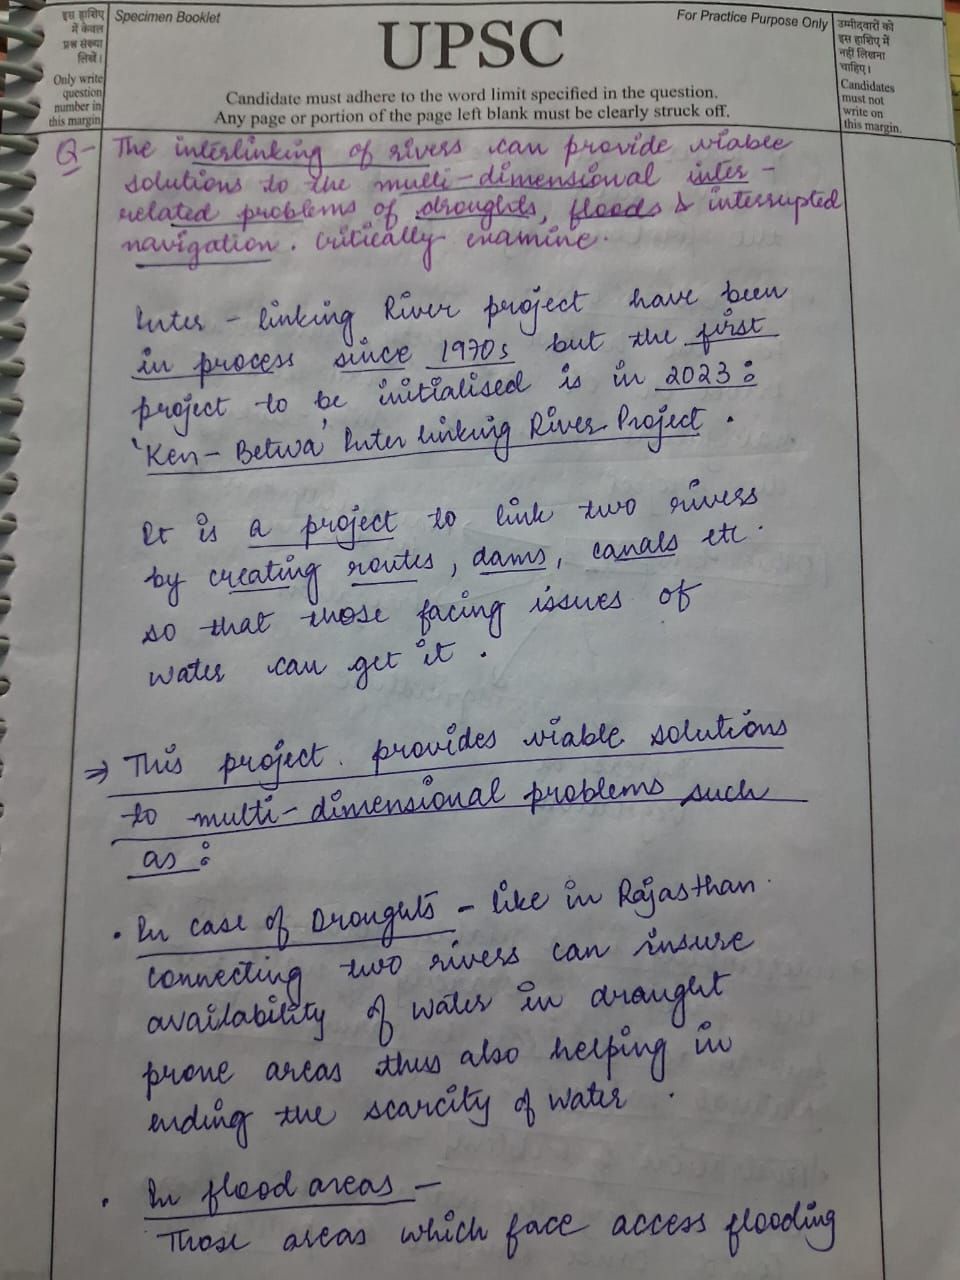 इस हाशिए
में केवल
प्रश्न संख्या
लिखें।
Only write
question
number in
this margin
Specimen Booklet
For Practice Purpose Only
UPSC
Candidate must adhere to the word limit specified in the question.
Any page or portion of the page left blank must be clearly struck off.
उम्मीदवारों को
इस हाशिए में
नहीं लिखना
चाहिए।
Candidates
must not
write on
this margin.
Q- The interlinking of rivers can provide viable
solutions to the multi-dimensional inter-
related problems of droughts, floods & interrupted
navigation. Critically examine.
Inter-linking River project have been
in process since 1970s but the first
project to be initialised is in 2023:
'Ken-Betwa' Inter linking River Project.
It is a project to link two rivers
by creating routes, dams, canals etc.
so that those facing issues of
water can get it.
⇒ This project provides viable solutions
to multi-dimensional problems such
as:
• In case of Droughts - like in Rajasthan
connecting two rivers can insure
availability of water in draught
prone areas thus also helping in
ending the scarcity of water.
• In flood areas -
Those areas which face access flooding